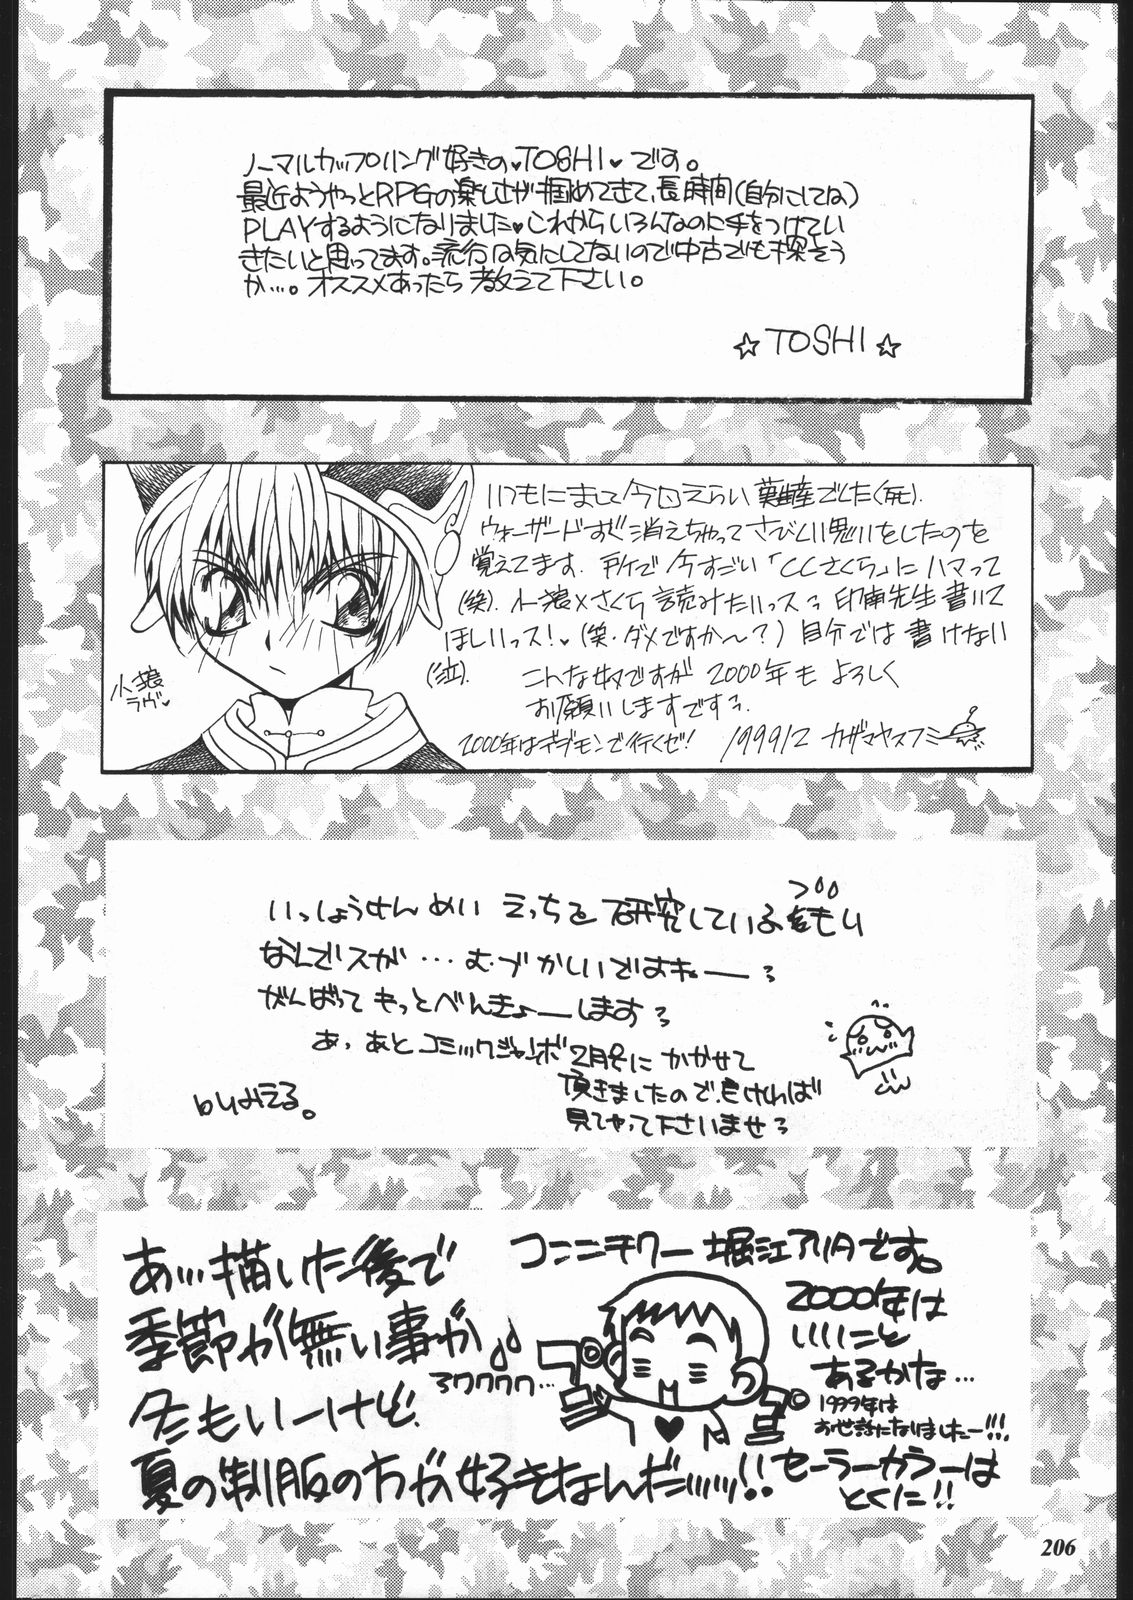 ノーマルカップリング好きの♥TOSHI♥です。
最近ようやっとRPGの楽しさが掴めてきて、長時間(自分にしてね)
PLAYするようになりました♥これからいろんなのに手をつけてい
きたいと思ってます。流行は気にしてないので中古でも探そう
か…。オススメあったら教えて下さい。
☆TOSHI☆
いつもにまして今回えらい難産でした(死).
ウォーザードすぐ消えちゃってさびしい思いをしたのを
覚えてます.所で今すごい「CCさくら」にハマって
(笑).小狼×さくら読みたいっスっ印南先生書いて
ほしいっス!♥(笑・ダメですか〜?)自分では書けない
(泣).こんな奴ですが2000年もよろしく
お願いしますですっ.
小狼
ラヴ♥
2000年はデジモンで行くぜ! 199912 カザマヤスフミ
いっしょうけんめい えっちを研究しているつもり
なんでスが…むづかしいですねーっ
がんばってもっとべんきょーしますっ
あっあとコミックジャンボ2月号にかかせて
頂きましたので良ければ
見てやって下さいませっ
byみえる。
コンニチワー堀江アリタです。
あ…描いた後で
季節が無い事が♪
冬もいーけど.
夏の制服の方が好きなんだッッッ!!
2000年は
いいこと
あるかな…
1999年は
お世話になりましたー!!!
セーラーカラーは
とくに!!
206